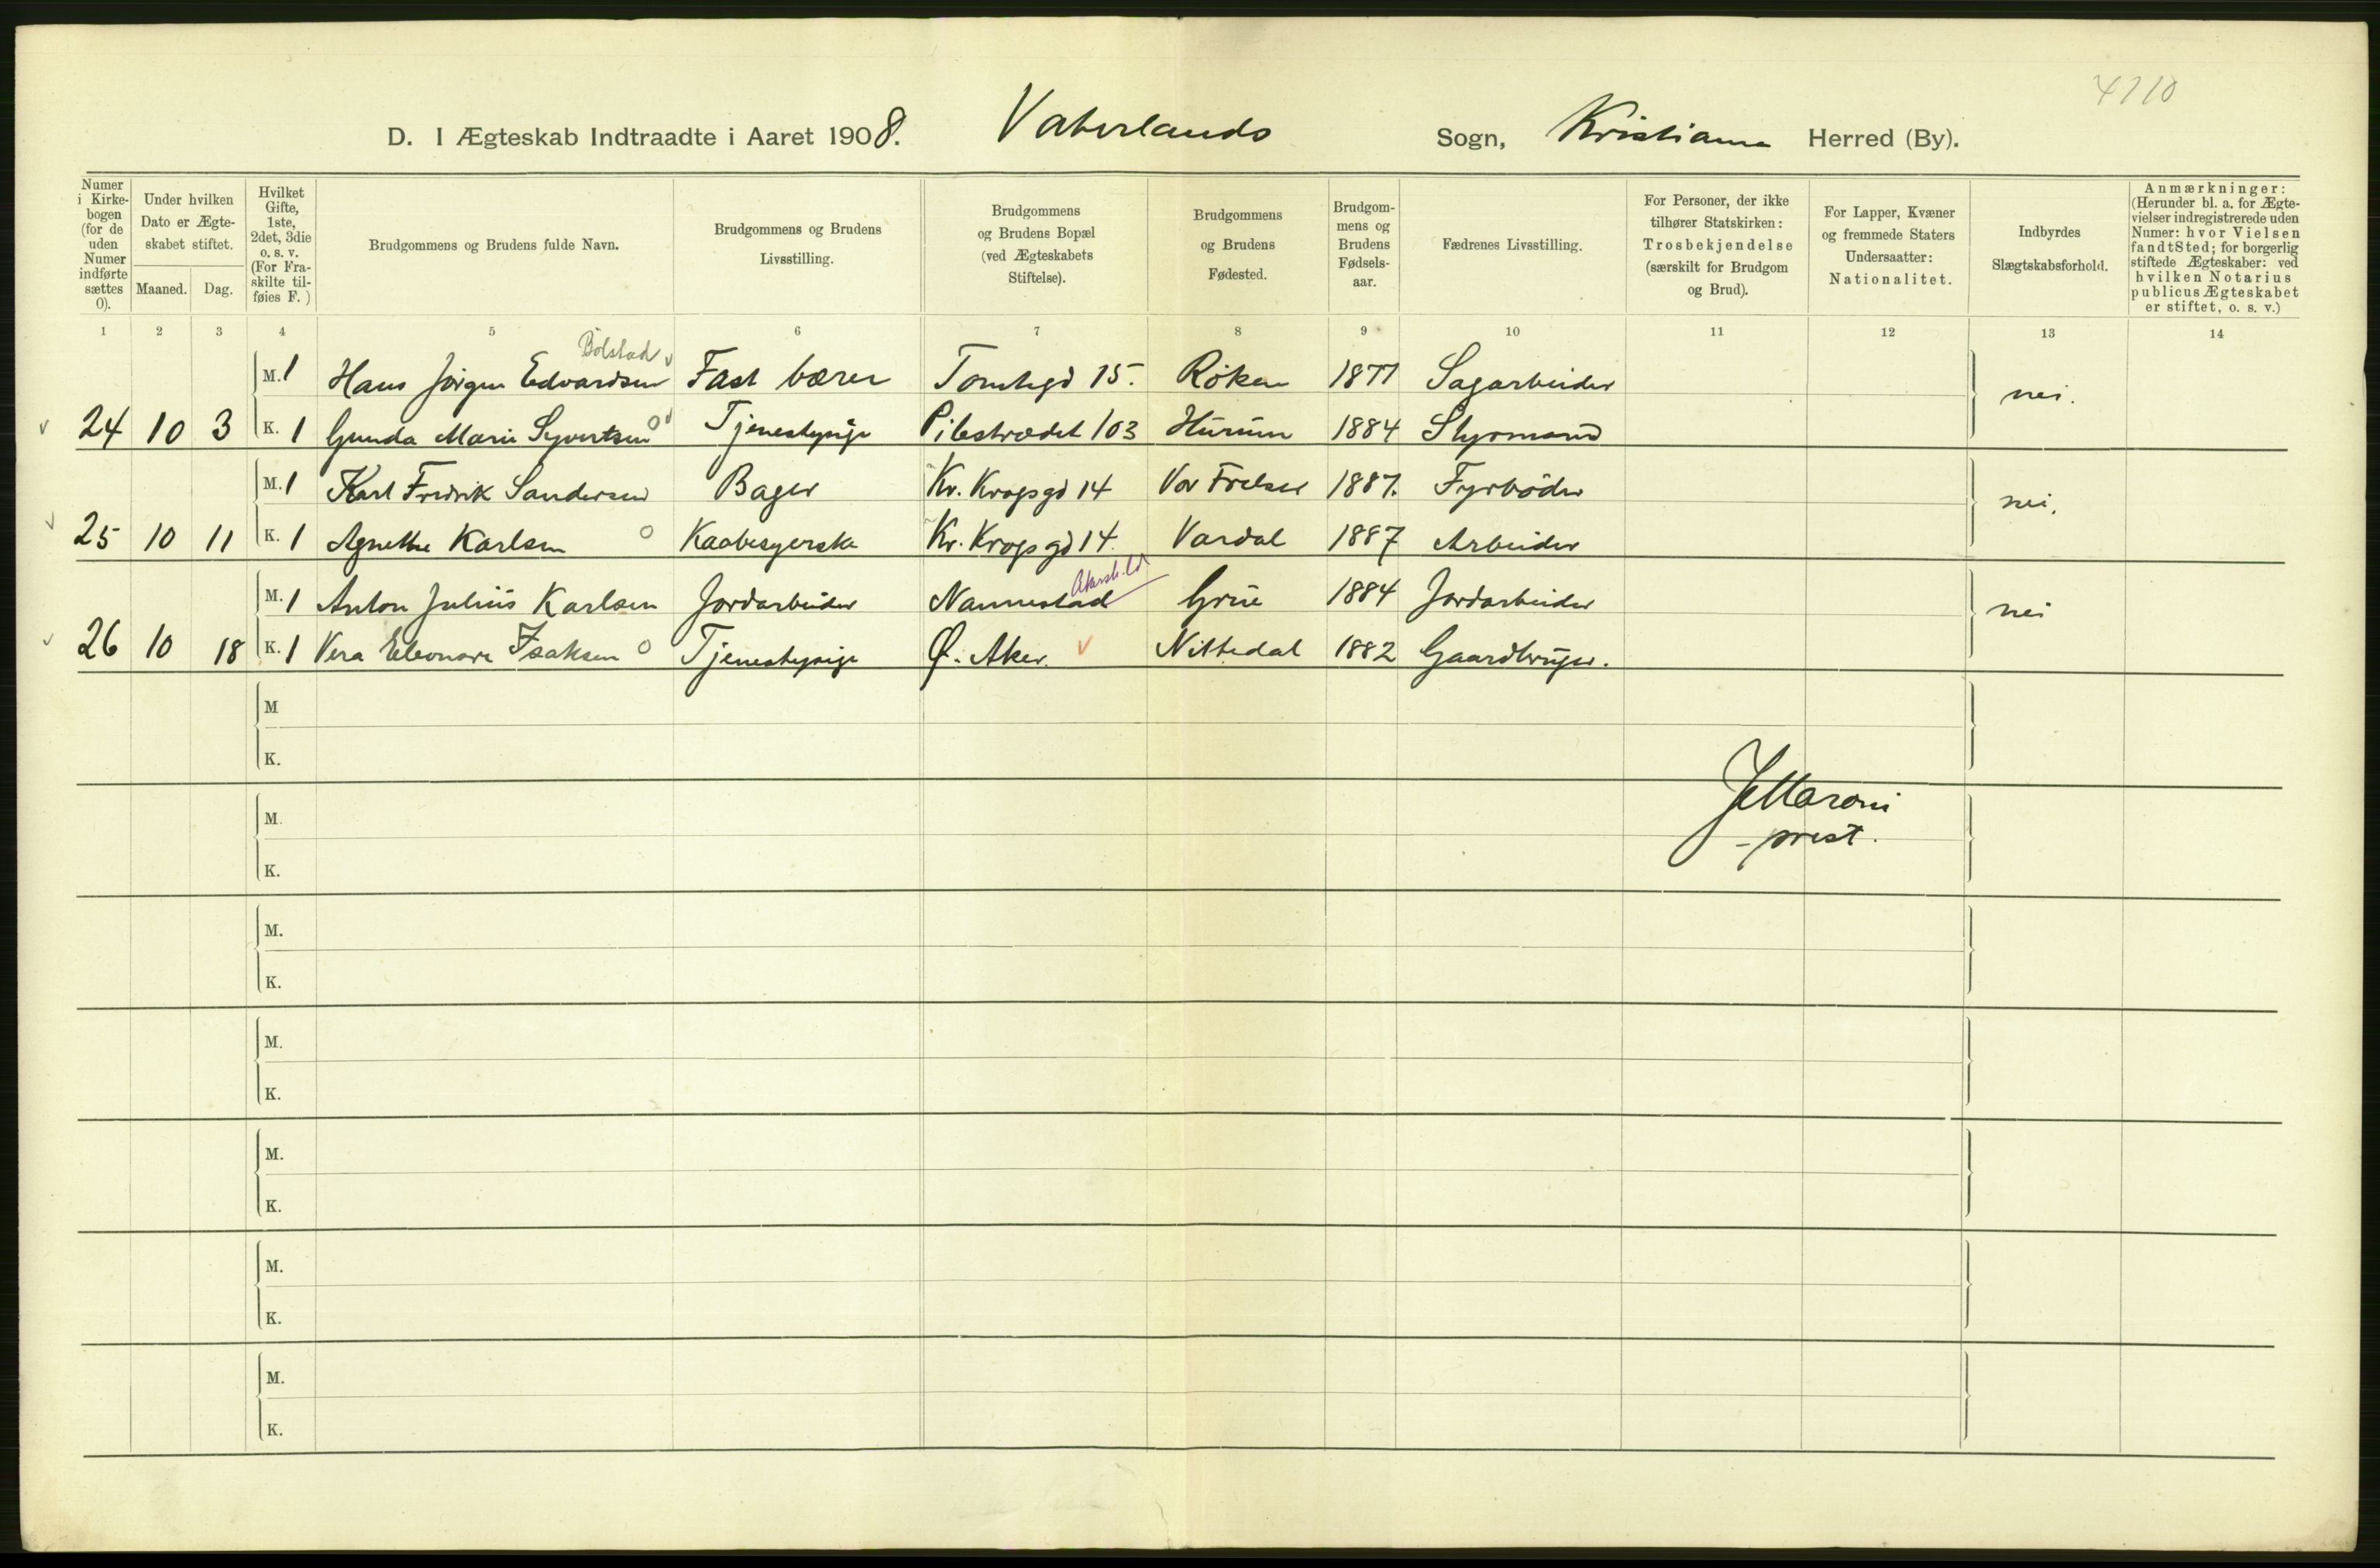 4110
D. I Ægteskab Indtraadte i Aaret 1908. Vaterlands Sogn, Kristiania Herred (By).
Numer i Kirkebogen (for de uden Numer indførte sættes 0). Under hvilken Dato er Ægteskabet stiftet. Maaned. Dag. Hvilket Gifte, 1ste, 2det, 3die o. s. v. (For Fraskilte tilføies F.) Brudgommens og Brudens fulde Navn. Brudgommens og Brudens Livsstilling. Brudgommens og Brudens Bopæl (ved Ægteskabets Stiftelse). Brudgommens og Brudens Fødested. Brudgommens og Brudens Fødselsaar. Fædrenes Livsstilling. For Personer, der ikke tilhører Statskirken: Trosbekjendelse (særskilt for Brudgom og Brud). For Lapper, Kvæner og fremmede Staters Undersaatter: Nationalitet. Indbyrdes Slægtskabsforhold. Anmærkninger: (Herunder bl. a. for Ægtevielser indregistrerede uden Numer: hvor Vielsen fandt Sted; for borgerlig stiftede Ægteskaber: ved hvilken Notarius publicus Ægteskabet er stiftet, o. s. v.)
1 2 3 4 5 6 7 8 9 10 11 12 13 14
Bolstad
M. 1 Hans Jørgen Edvardsen Fast bærer Tomtegd 15. Røken 1877 Sagarbeider nei.
24 10 3 K. 1 Gunda Marie Syvertsen Tjenestepige Pilestrædet 103 Hurum 1884 Styrmand
M. 1 Karl Fredrik Sandersen Bager Kr. Krogsgd 14 Vor Frelser 1887. Fyrbøder nei.
25 10 11 K. 1 Agnethe Karlsen Kaabesyerske Kr. Krogsgd 14. Vardal 1887 Arbeider
M. 1 Anton Julius Karlsen Jordarbeider Nannestad Grue 1884 Jordarbeider nei
26 10 18 K. 1 Vera Eleonore Isaksen Tjenestepige Ø. Aker. Nittedal 1882 Gaardbruger.
M
K.
M.
K.
prest.
M.
K.
M.
K.
M.
K.
M.
K.
M.
K.